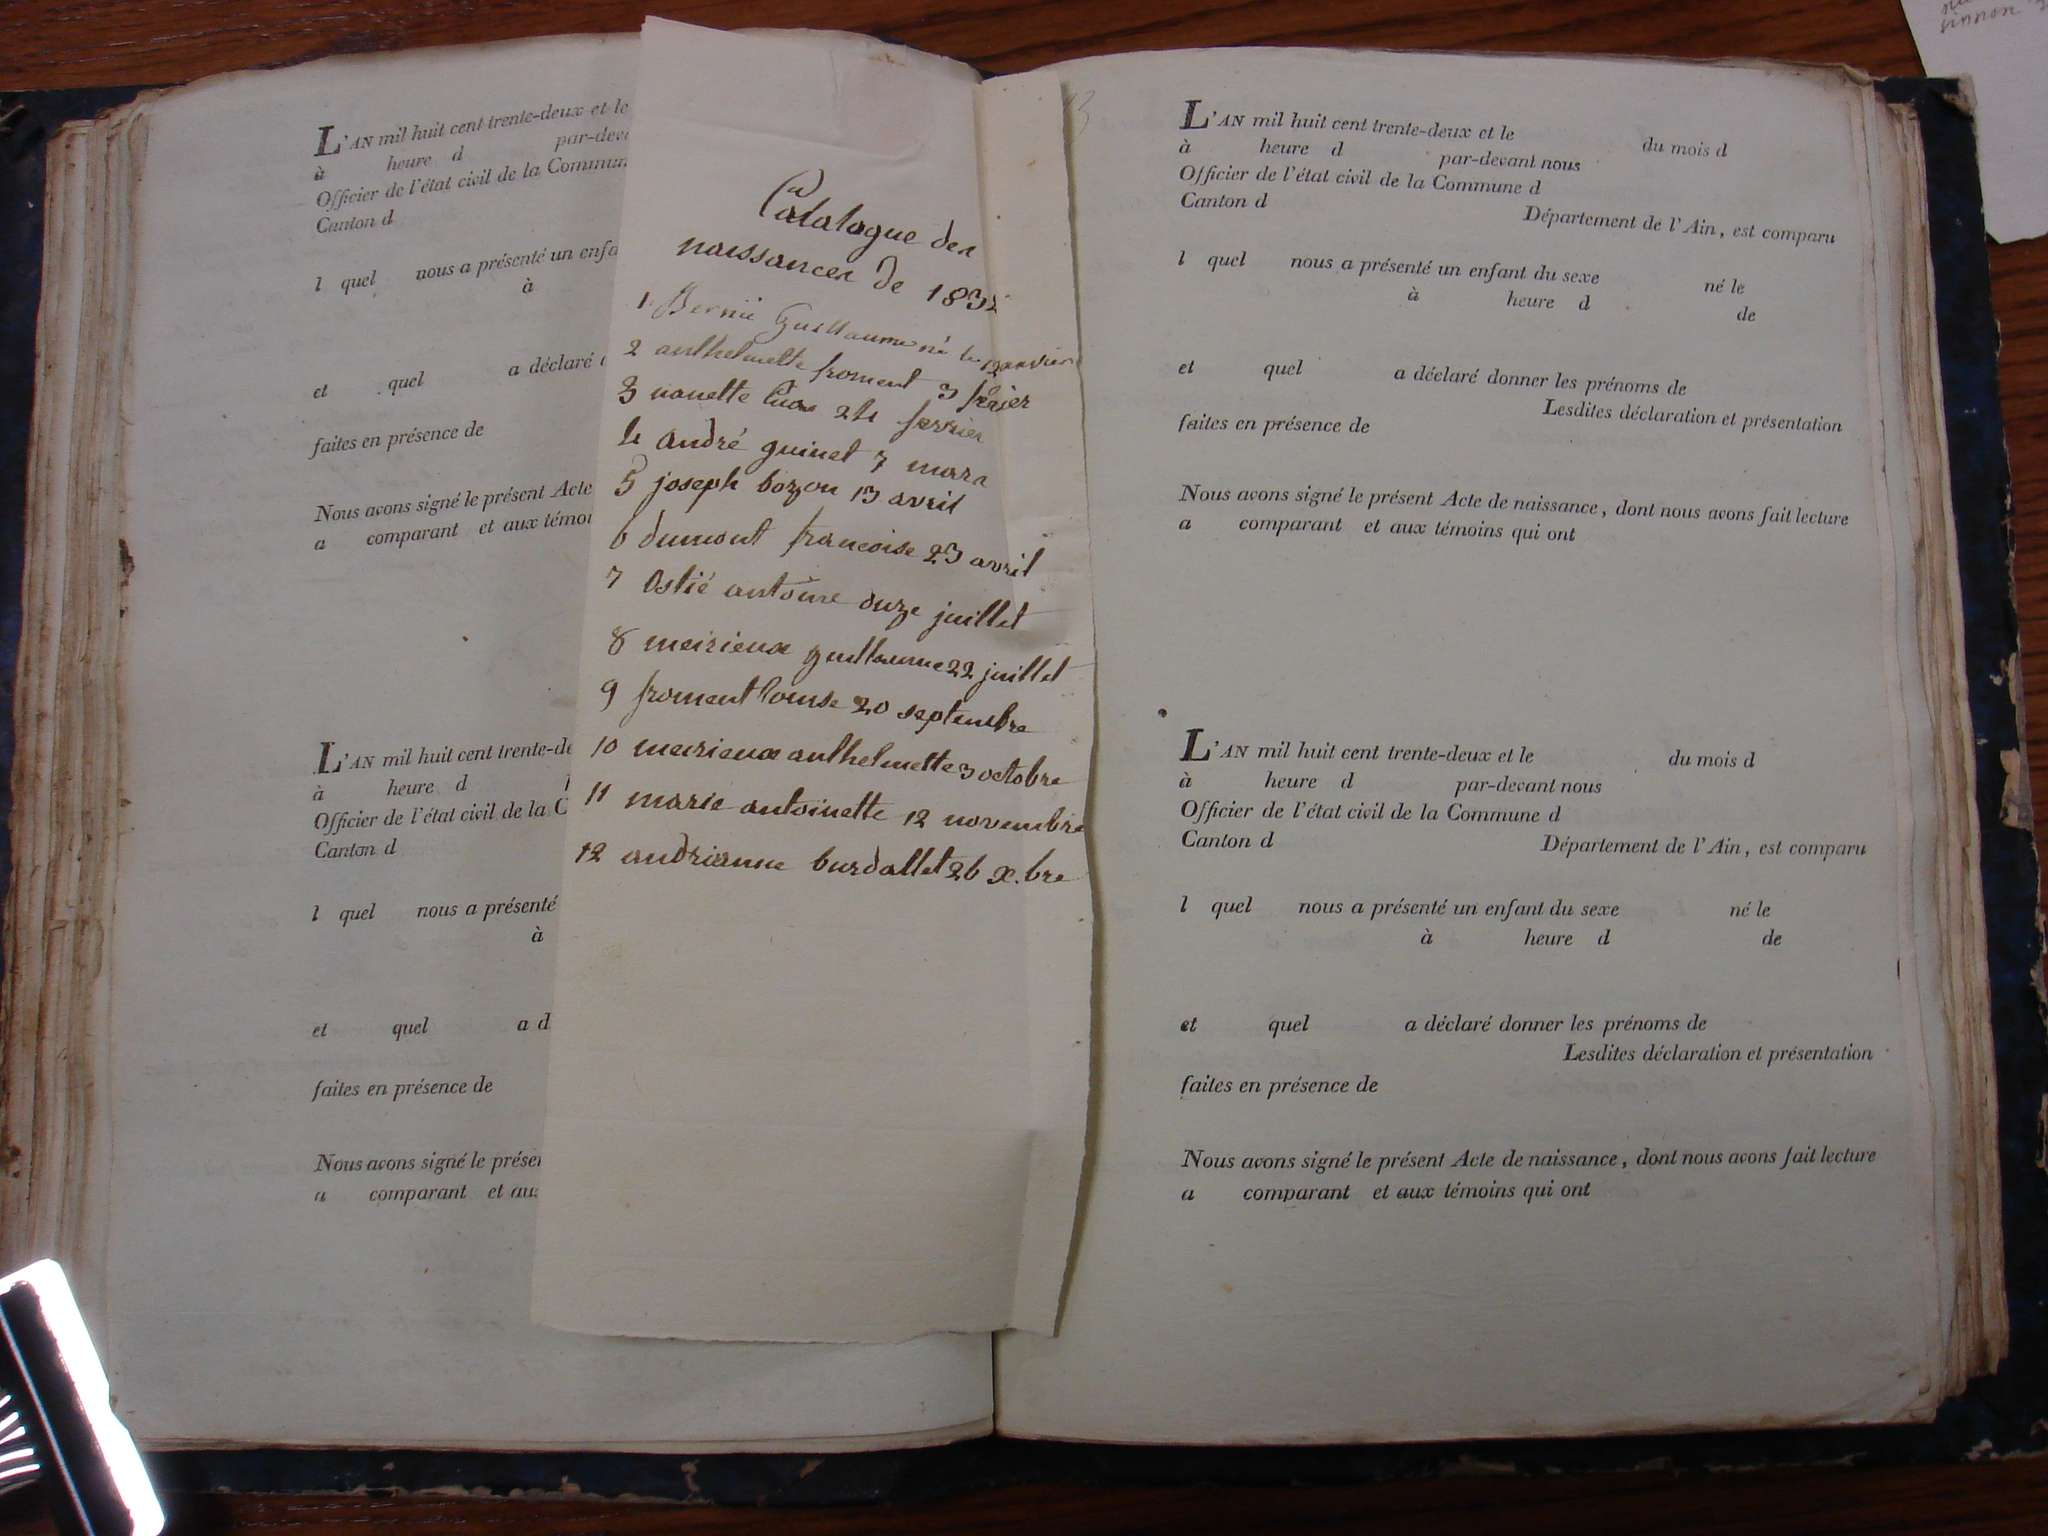 L'AN mil huit cent trente-deux et le
à heure d par-deva
Officier de l'état civil de la Commun
Canton d
l quel nous a présenté un enfa
à
et quel a déclaré
faites en présence de
Nous avons signé le présent Acte
a comparant et aux témoi
L'AN mil huit cent trente-de
à heure d
Officier de l'état civil de la C
Canton d
l quel nous a présenté
à
et quel a d
faites en présence de
Nous avons signé le présen
a comparant et aux
Catalogue des
naissances de 1832
1 Guillaume né le janvier
2 anthelmette froment 3 février
3 nanette 24 fevrier
4 andré guinet 7 mars
5 joseph bozon 13 avril
6 dumont francoise 23 avril
7 Ostié antoine onze juillet
8 meirieux guillaume 22 juillet
9 froment louise 20 septembre
10 meirieux anthelmette 3 octobre
11 marie antoinette 12 novembre
12 andrianne burdallet 26 x.bre
L'AN mil huit cent trente-deux et le du mois d
à heure d par-devant nous
Officier de l'état civil de la Commune d
Canton d Département de l'Ain, est comparu
l quel nous a présenté un enfant du sexe né le
à heure d de
et quel a déclaré donner les prénoms de
Lesdites déclaration et présentation
faites en présence de
Nous avons signé le présent Acte de naissance, dont nous avons fait lecture
a comparant et aux témoins qui ont
L'AN mil huit cent trente-deux et le du mois d
à heure d par-devant nous
Officier de l'état civil de la Commune d
Canton d Département de l'Ain, est comparu
l quel nous a présenté un enfant du sexe né le
à heure d de
et quel a déclaré donner les prénoms de
Lesdites déclaration et présentation
faites en présence de
Nous avons signé le présent Acte de naissance, dont nous avons fait lecture
a comparant et aux témoins qui ont